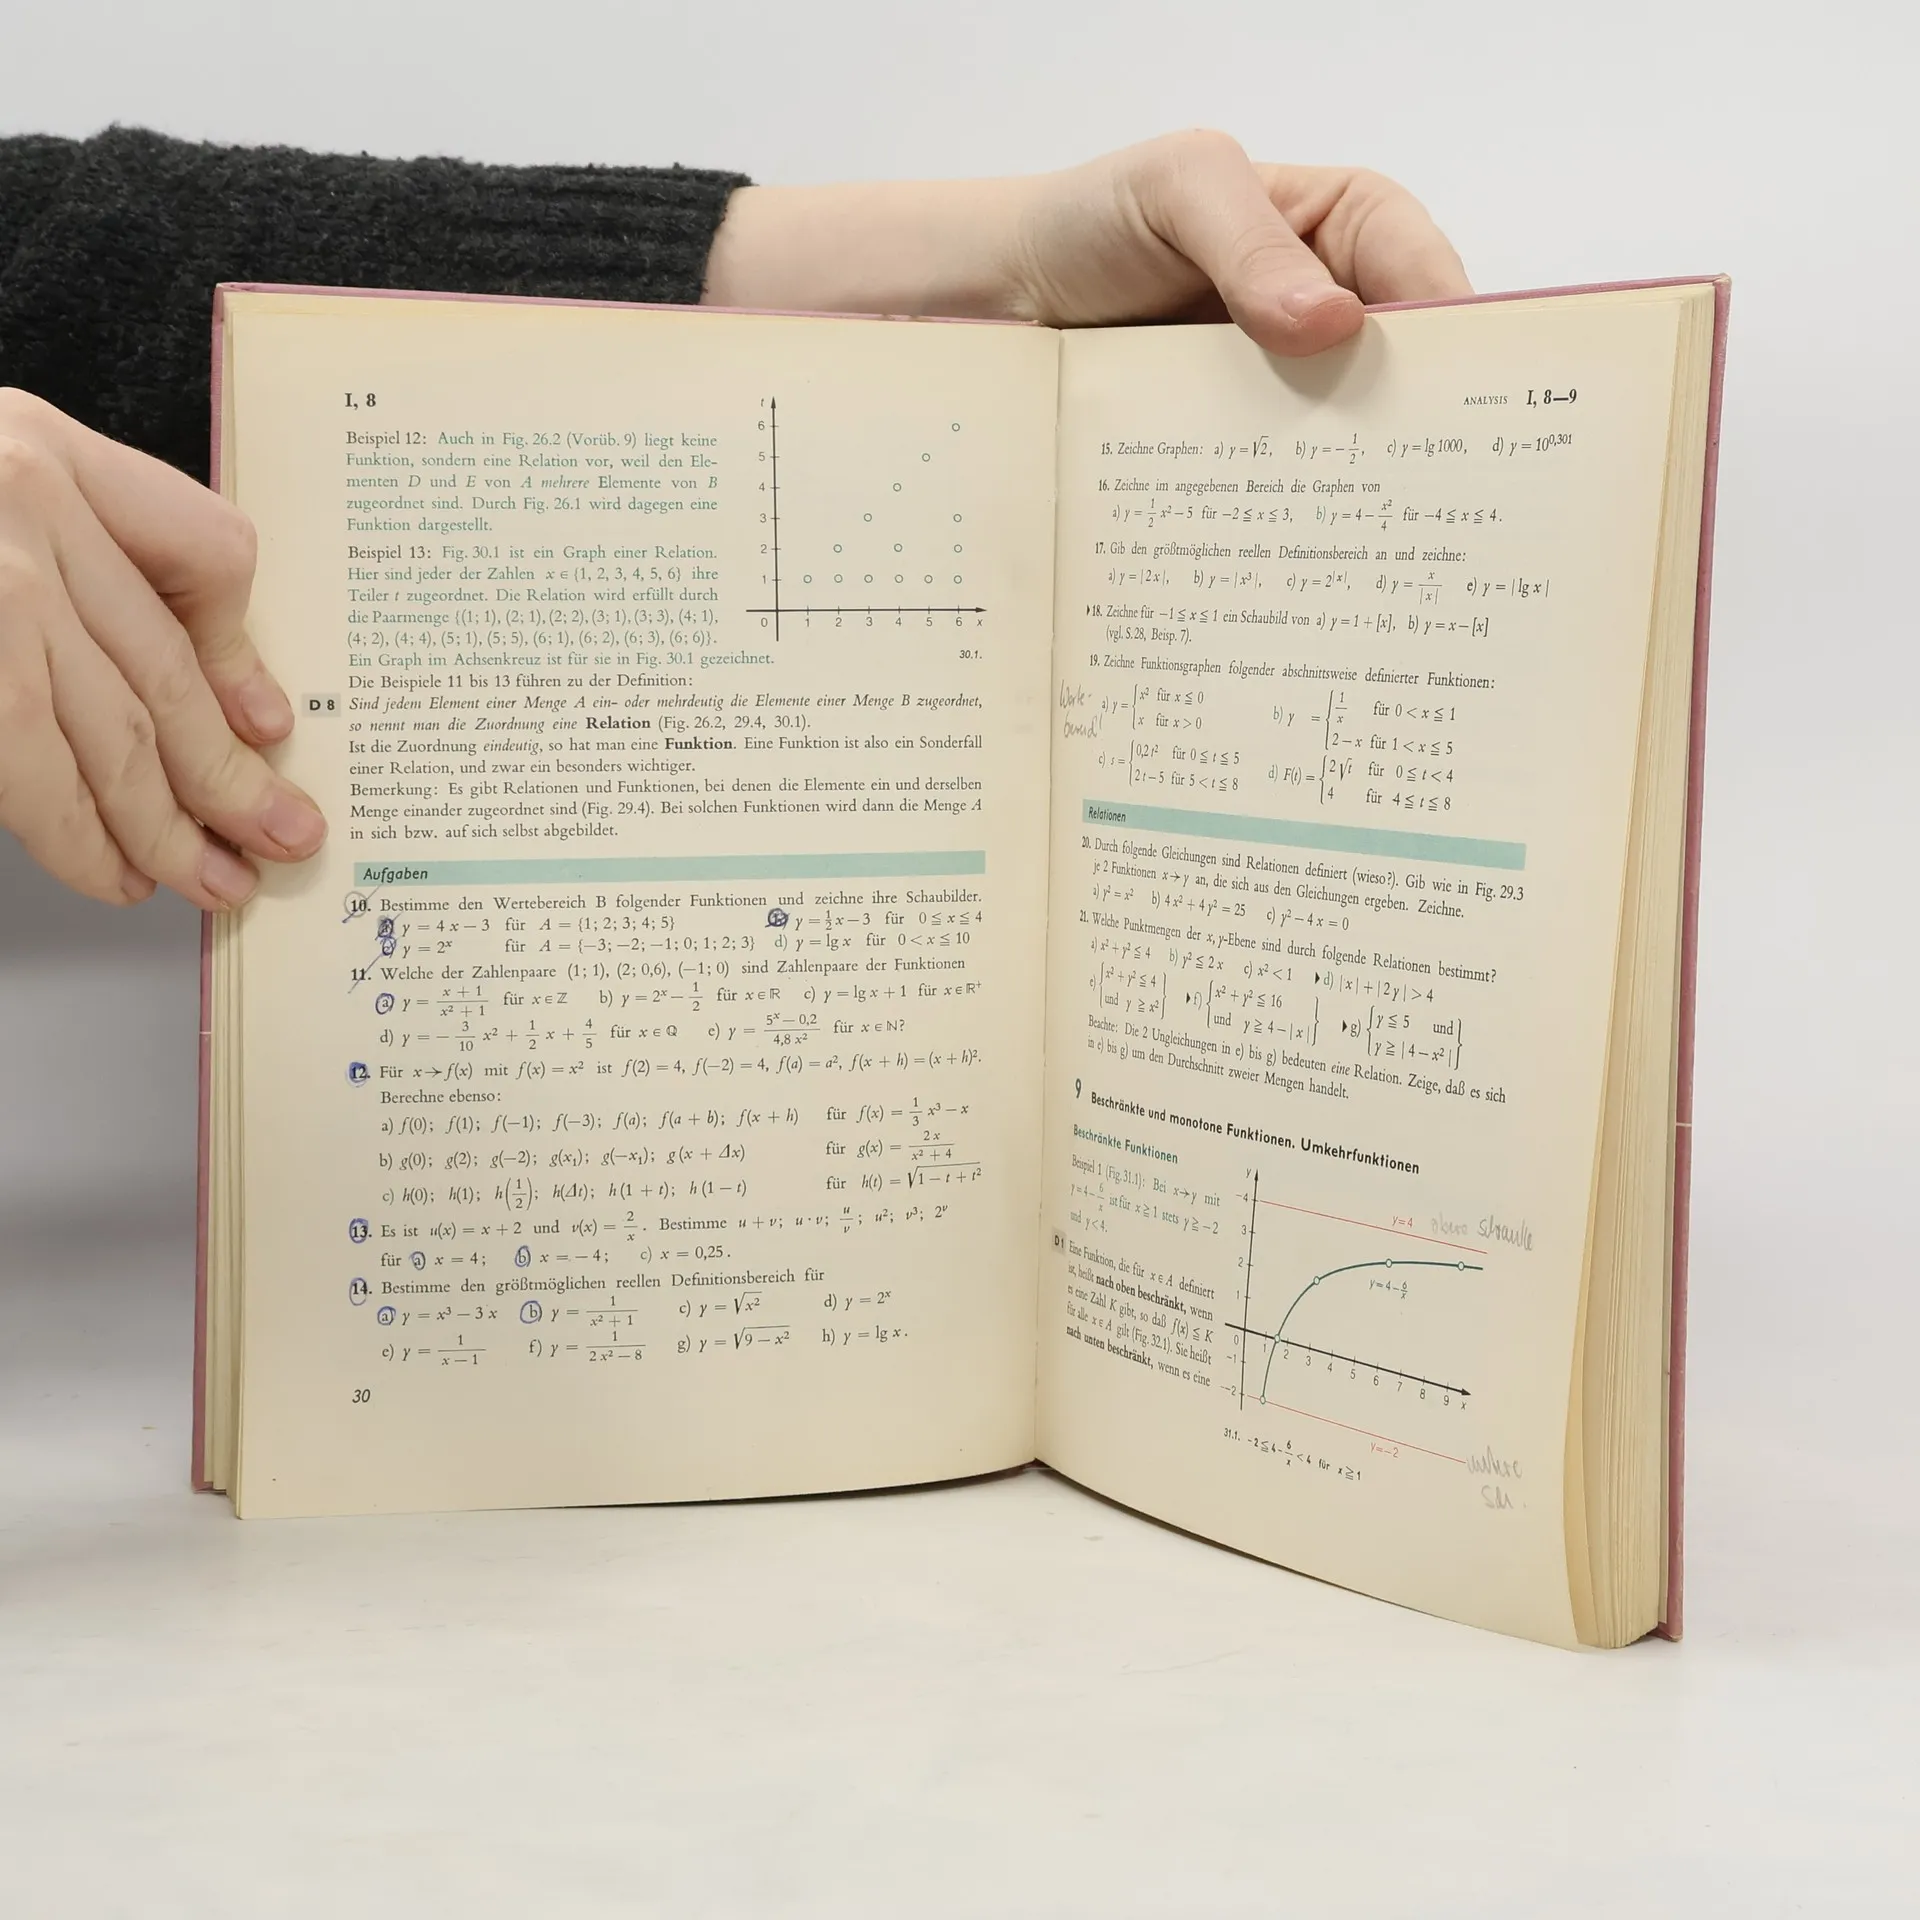 I, 8
Beispiel 12: Auch in Fig. 26.2 (Vorüb. 9) liegt keine
Funktion, sondern eine Relation vor, weil den Ele-
menten D und E von A mehrere Elemente von B
zugeordnet sind. Durch Fig. 26.1 wird dagegen eine
Funktion dargestellt.
Beispiel 13: Fig. 30.1 ist ein Graph einer Relation.
Hier sind jeder der Zahlen x ∈ {1, 2, 3, 4, 5, 6} ihre
Teiler t zugeordnet. Die Relation wird erfüllt durch
die Paarmenge {(1; 1), (2; 1), (2; 2), (3; 1), (3; 3), (4; 1),
(4; 2), (4; 4), (5; 1), (5; 5), (6; 1), (6; 2), (6; 3), (6; 6)}.
Ein Graph im Achsenkreuz ist für sie in Fig. 30.1 gezeichnet.
t
6
5
4
3
2
1
0 1 2 3 4 5 6 x
30.1.
Die Beispiele 11 bis 13 führen zu der Definition:
D 8 Sind jedem Element einer Menge A ein- oder mehrdeutig die Elemente einer Menge B zugeordnet,
so nennt man die Zuordnung eine Relation (Fig. 26.2, 29.4, 30.1).
Ist die Zuordnung eindeutig, so hat man eine Funktion. Eine Funktion ist also ein Sonderfall
einer Relation, und zwar ein besonders wichtiger.
Bemerkung: Es gibt Relationen und Funktionen, bei denen die Elemente ein und derselben
Menge einander zugeordnet sind (Fig. 29.4). Bei solchen Funktionen wird dann die Menge A
in sich bzw. auf sich selbst abgebildet.
Aufgaben
10. Bestimme den Wertebereich B folgender Funktionen und zeichne ihre Schaubilder.
a) y = 4x − 3 für A = {1; 2; 3; 4; 5} b) y = ½x − 3 für 0 ≦ x ≦ 4
c) y = 2ˣ für A = {−3; −2; −1; 0; 1; 2; 3} d) y = lg x für 0 < x ≦ 10
11. Welche der Zahlenpaare (1; 1), (2; 0,6), (−1; 0) sind Zahlenpaare der Funktionen
a) y = (x + 1)/(x² + 1) für x ∈ ℤ b) y = 2ˣ − 1/2 für x ∈ ℝ c) y = lg x + 1 für x ∈ ℝ⁺
d) y = − 3/10 x² + 1/2 x + 4/5 für x ∈ ℚ e) y = (5ˣ − 0,2)/(4,8 x²) für x ∈ ℕ?
12. Für x → f(x) mit f(x) = x² ist f(2) = 4, f(−2) = 4, f(a) = a², f(x + h) = (x + h)².
Berechne ebenso:
a) f(0); f(1); f(−1); f(−3); f(a); f(a + b); f(x + h) für f(x) = 1/3 x³ − x
b) g(0); g(2); g(−2); g(x₁); g(−x₁); g(x + Δx) für g(x) = 2x/(x² + 4)
c) h(0); h(1); h(1/2); h(Δt); h(1 + t); h(1 − t) für h(t) = √(1 − t + t²)
13. Es ist u(x) = x + 2 und v(x) = 2/x. Bestimme u + v; u · v; u/v; u²; v³; 2ᵛ
für a) x = 4; b) x = −4; c) x = 0,25.
14. Bestimme den größtmöglichen reellen Definitionsbereich für
a) y = x³ − 3x b) y = 1/(x² + 1) c) y = √x² d) y = 2ˣ
e) y = 1/(x − 1) f) y = 1/(2x² − 8) g) y = √(9 − x²) h) y = lg x.
30
ANALYSIS I, 8—9
15. Zeichne Graphen: a) y = √2, b) y = − 1/2, c) y = lg 1000, d) y = 10^0,301
16. Zeichne im angegebenen Bereich die Graphen von
a) y = 1/2 x² − 5 für −2 ≦ x ≦ 3, b) y = 4 − x²/4 für −4 ≦ x ≦ 4.
17. Gib den größtmöglichen reellen Definitionsbereich an und zeichne:
a) y = |2x|, b) y = |x³|, c) y = 2^|x|, d) y = x/|x| e) y = |lg x|
▸18. Zeichne für −1 ≦ x ≦ 1 ein Schaubild von a) y = 1 + [x], b) y = x − [x]
(vgl. S. 28, Beisp. 7).
19. Zeichne Funktionsgraphen folgender abschnittsweise definierter Funktionen:
Werte-
bereich!
a) y = { x² für x ≦ 0
x für x > 0
b) y = { 1/x für 0 < x ≦ 1
2 − x für 1 < x ≦ 5
c) s = { 0,2 t² für 0 ≦ t ≦ 5
2t − 5 für 5 < t ≦ 8
d) F(t) = { 2√t für 0 ≦ t < 4
4 für 4 ≦ t ≦ 8
Relationen
20. Durch folgende Gleichungen sind Relationen definiert (wieso?). Gib wie in Fig. 29.3
je 2 Funktionen x → y an, die sich aus den Gleichungen ergeben. Zeichne.
a) y² = x² b) 4x² + 4y² = 25 c) y² − 4x = 0
21. Welche Punktmengen der x, y-Ebene sind durch folgende Relationen bestimmt?
a) x² + y² ≦ 4 b) y² ≦ 2x c) x² < 1 ▸d) |x| + |2y| > 4
e) { x² + y² ≦ 4
und y ≧ x² }
▸f) { x² + y² ≦ 16
und y ≧ 4 − |x| }
▸g) { y ≦ 5 und
y ≧ |4 − x²| }
Beachte: Die 2 Ungleichungen in e) bis g) bedeuten eine Relation. Zeige, daß es sich
in e) bis g) um den Durchschnitt zweier Mengen handelt.
9 Beschränkte und monotone Funktionen. Umkehrfunktionen
Beschränkte Funktionen
Beispiel 1 (Fig. 31.1): Bei x → y mit
y = 4 − 6/x ist für x ≧ 1 stets y ≧ −2
und y < 4.
D 1 Eine Funktion, die für x ∈ A definiert
ist, heißt nach oben beschränkt, wenn
es eine Zahl K gibt, so daß f(x) ≦ K
für alle x ∈ A gilt (Fig. 32.1). Sie heißt
nach unten beschränkt, wenn es eine
y
4
3
2
1
0
−1
−2
1 2 3 4 5 6 7 8 9 x
y=4 obere Schranke
y=4−6/x
y=−2 untere
Sch.
31.1. −2 ≦ 4 − 6/x < 4 für x ≧ 1